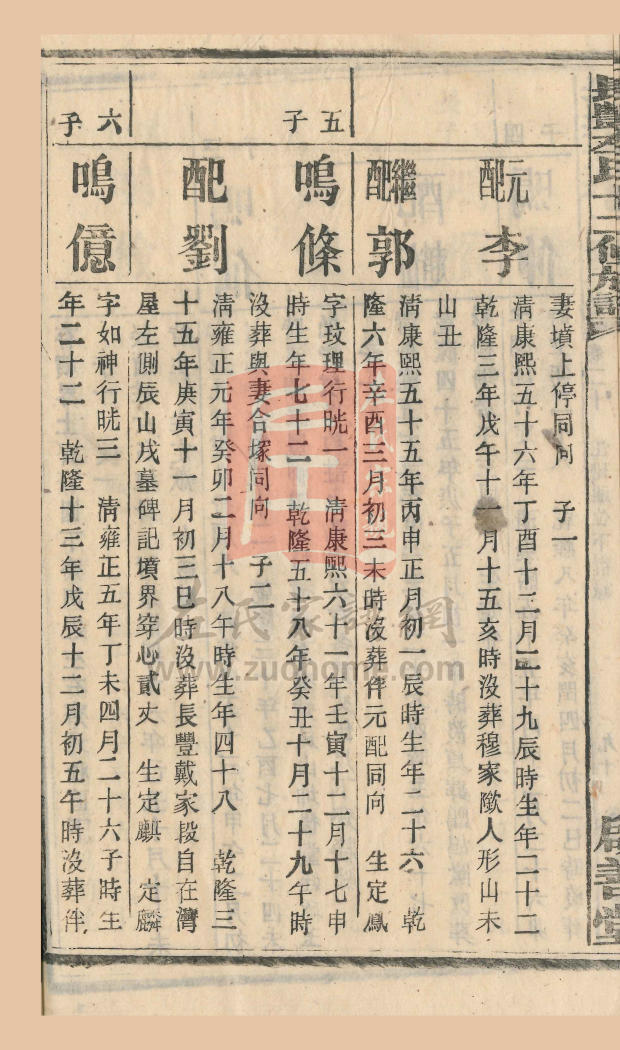 妻墳上停同向 子一
元配李
清康熙五十六年丁酉十二月二十九辰時生年二十二
乾隆三年戊午十一月十五亥時沒葬穆家歞人形山未
山丑
繼配郭
清康熙五十五年丙申正月初一辰時生年二十六 乾
隆六年辛酉三月初三未時沒葬伴元配同向 生定鳳
五子
鳴條
字玟理行晄一 清康熙六十一年壬寅十二月十七申
時生年七十二 乾隆五十八年癸丑十月二十九午時
沒葬與妻合塚同向 子二
配劉
清雍正元年癸卯二月十八午時生年四十八 乾隆三
十五年庚寅十一月初三巳時沒葬長豐戴家段自在灣
屋左側辰山戌墓碑記墳界穿心貳丈 生定麒 定麟
六子
鳴億
字如神行晄三 清雍正五年丁未四月二十六子時生
年二十二 乾隆十三年戊辰十二月初五午時沒葬伴
左氏家譜網
www.zuohome.com